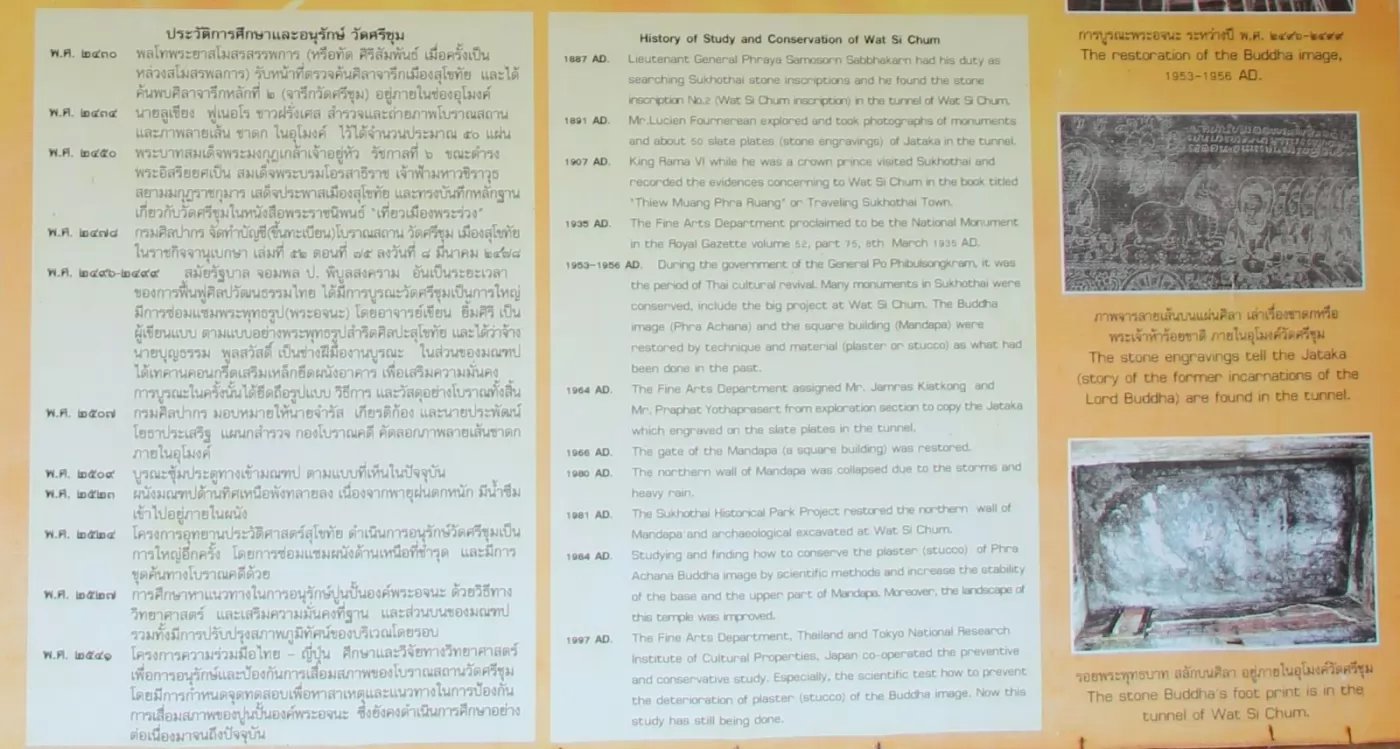 ประวัติการศึกษาและอนุรักษ์ วัดศรีชุม
พ.ศ. ๒๔๓๐ พลโทพระยาสโมสรสรรพการ (หรือทัด ศิริสัมพันธ์ เมื่อครั้งเป็น
หลวงสโมสรพลการ) รับหน้าที่ตรวจค้นศิลาจารึกเมืองสุโขทัย และได้
ค้นพบศิลาจารึกหลักที่ ๒ (จารึกวัดศรีชุม) อยู่ภายในช่องอุโมงค์
พ.ศ. ๒๔๓๔ นายลูเซียง ฟูเนอโร ชาวฝรั่งเศส สำรวจและถ่ายภาพโบราณสถาน
และภาพลายเส้น ชาดก ในอุโมงค์ ไว้ได้จำนวนประมาณ ๕๐ แผ่น
พ.ศ. ๒๔๕๐ พระบาทสมเด็จพระมงกุฎเกล้าเจ้าอยู่หัว รัชกาลที่ ๖ ขณะดำรง
พระอิสริยยศเป็น สมเด็จพระบรมโอรสาธิราช เจ้าฟ้ามหาวชิราวุธ
สยามมกุฎราชกุมาร เสด็จประพาสเมืองสุโขทัย และทรงบันทึกหลักฐาน
เกี่ยวกับวัดศรีชุมในหนังสือพระราชนิพนธ์ "เที่ยวเมืองพระร่วง"
พ.ศ. ๒๔๗๘ กรมศิลปากร จัดทำบัญชี(ขึ้นทะเบียน)โบราณสถาน วัดศรีชุม เมืองสุโขทัย
ในราชกิจจานุเบกษา เล่มที่ ๕๒ ตอนที่ ๗๕ ลงวันที่ ๘ มีนาคม ๒๔๗๘
พ.ศ. ๒๔๙๖-๒๔๙๙ สมัยรัฐบาล จอมพล ป. พิบูลสงคราม อันเป็นระยะเวลา
ของการฟื้นฟูศิลปวัฒนธรรมไทย ได้มีการบูรณะวัดศรีชุมเป็นการใหญ่
มีการซ่อมแซมพระพุทธรูป(พระอจนะ) โดยอาจารย์เขียน ยิ้มศิริ เป็น
ผู้เขียนแบบ ตามแบบอย่างพระพุทธรูปสำริดศิลปะสุโขทัย และได้ว่าจ้าง
นายบุญธรรม พูลสวัสดิ์ เป็นช่างฝีมืองานบูรณะ ในส่วนของมณฑป
ได้เทคานคอนกรีตเสริมเหล็กยึดผนังอาคาร เพื่อเสริมความมั่นคง
การบูรณะในครั้งนั้นได้ยึดถือรูปแบบ วิธีการ และวัสดุอย่างโบราณทั้งสิ้น
พ.ศ. ๒๕๐๗ กรมศิลปากร มอบหมายให้นายจำรัส เกียรติก้อง และนายประพัฒน์
โยธาประเสริฐ แผนกสำรวจ กองโบราณคดี คัดลอกภาพลายเส้นชาดก
ภายในอุโมงค์
พ.ศ. ๒๕๐๙ บูรณะซุ้มประตูทางเข้ามณฑป ตามแบบที่เห็นในปัจจุบัน
พ.ศ. ๒๕๒๓ ผนังมณฑปด้านทิศเหนือพังทลายลง เนื่องจากพายุฝนตกหนัก มีน้ำซึม
เข้าไปอยู่ภายในผนัง
พ.ศ. ๒๕๒๔ โครงการอุทยานประวัติศาสตร์สุโขทัย ดำเนินการอนุรักษ์วัดศรีชุมเป็น
การใหญ่อีกครั้ง โดยการซ่อมแซมผนังด้านเหนือที่ชำรุด และมีการ
ขุดค้นทางโบราณคดีด้วย
พ.ศ. ๒๕๒๗ การศึกษาหาแนวทางในการอนุรักษ์ปูนปั้นองค์พระอจนะ ด้วยวิธีทาง
วิทยาศาสตร์ และเสริมความมั่นคงที่ฐาน และส่วนบนของมณฑป
รวมทั้งมีการปรับปรุงสภาพภูมิทัศน์ของบริเวณโดยรอบ
พ.ศ. ๒๕๔๑ โครงการความร่วมมือไทย - ญี่ปุ่น ศึกษาและวิจัยทางวิทยาศาสตร์
เพื่อการอนุรักษ์และป้องกันการเสื่อมสภาพของโบราณสถานวัดศรีชุม
โดยมีการกำหนดจุดทดสอบเพื่อหาสาเหตุและแนวทางในการป้องกัน
การเสื่อมสภาพของปูนปั้นองค์พระอจนะ ซึ่งยังคงดำเนินการศึกษาอย่าง
ต่อเนื่องมาจนถึงปัจจุบัน
History of Study and Conservation of Wat Si Chum
1887 AD. Lieutenant General Phraya Samosorn Sabbhakarn had his duty as
searching Sukhothai stone inscriptions and he found the stone
inscription No.2 (Wat Si Chum inscription) in the tunnel of Wat Si Chum.
1891 AD. Mr.Lucien Fournerean explored and took photographs of monuments
and about 50 slate plates (stone engravings) of Jataka in the tunnel.
1907 AD. King Rama VI while he was a crown prince visited Sukhothai and
recorded the evidences concerning to Wat Si Chum in the book titled
"Thiew Muang Phra Ruang" or Traveling Sukhothai Town.
1935 AD. The Fine Arts Department proclaimed to be the National Monument
in the Royal Gazette volume 52, part 75, 8th March 1935 AD.
1953-1956 AD. During the government of the General Po Phibulsongkram, it was
the period of Thai cultural revival. Many monuments in Sukhothai were
conserved, include the big project at Wat Si Chum. The Buddha
image (Phra Achana) and the square building (Mandapa) were
restored by technique and material (plaster or stucco) as what had
been done in the past.
1964 AD. The Fine Arts Department assigned Mr. Jamras Kiatkong and
Mr. Praphat Yothaprasert from exploration section to copy the Jataka
which engraved on the slate plates in the tunnel.
1966 AD. The gate of the Mandapa (a square building) was restored.
1980 AD. The northern wall of Mandapa was collapsed due to the storms and
heavy rain.
1981 AD. The Sukhothai Historical Park Project restored the northern wall of
Mandapa and archaeological excavated at Wat Si Chum.
1984 AD. Studying and finding how to conserve the plaster (stucco) of Phra
Achana Buddha image by scientific methods and increase the stability
of the base and the upper part of Mandapa. Moreover, the landscape of
this temple was improved.
1997 AD. The Fine Arts Department, Thailand and Tokyo National Research
Institute of Cultural Properties, Japan co-operated the preventive
and conservative study. Especially, the scientific test how to prevent
the deterioration of plaster (stucco) of the Buddha image. Now this
study has still being done.
การบูรณะพระอจนะ ระหว่างปี พ.ศ. ๒๔๙๖-๒๔๙๙
The restoration of the Buddha image,
1953-1956 AD.
ภาพจารลายเส้นบนแผ่นศิลา เล่าเรื่องชาดกหรือ
พระเจ้าห้าร้อยชาติ ภายในอุโมงค์วัดศรีชุม
The stone engravings tell the Jataka
(story of the former incarnations of the
Lord Buddha) are found in the tunnel.
รอยพระพุทธบาท สลักบนศิลา อยู่ภายในอุโมงค์วัดศรีชุม
The stone Buddha's foot print is in the
tunnel of Wat Si Chum.